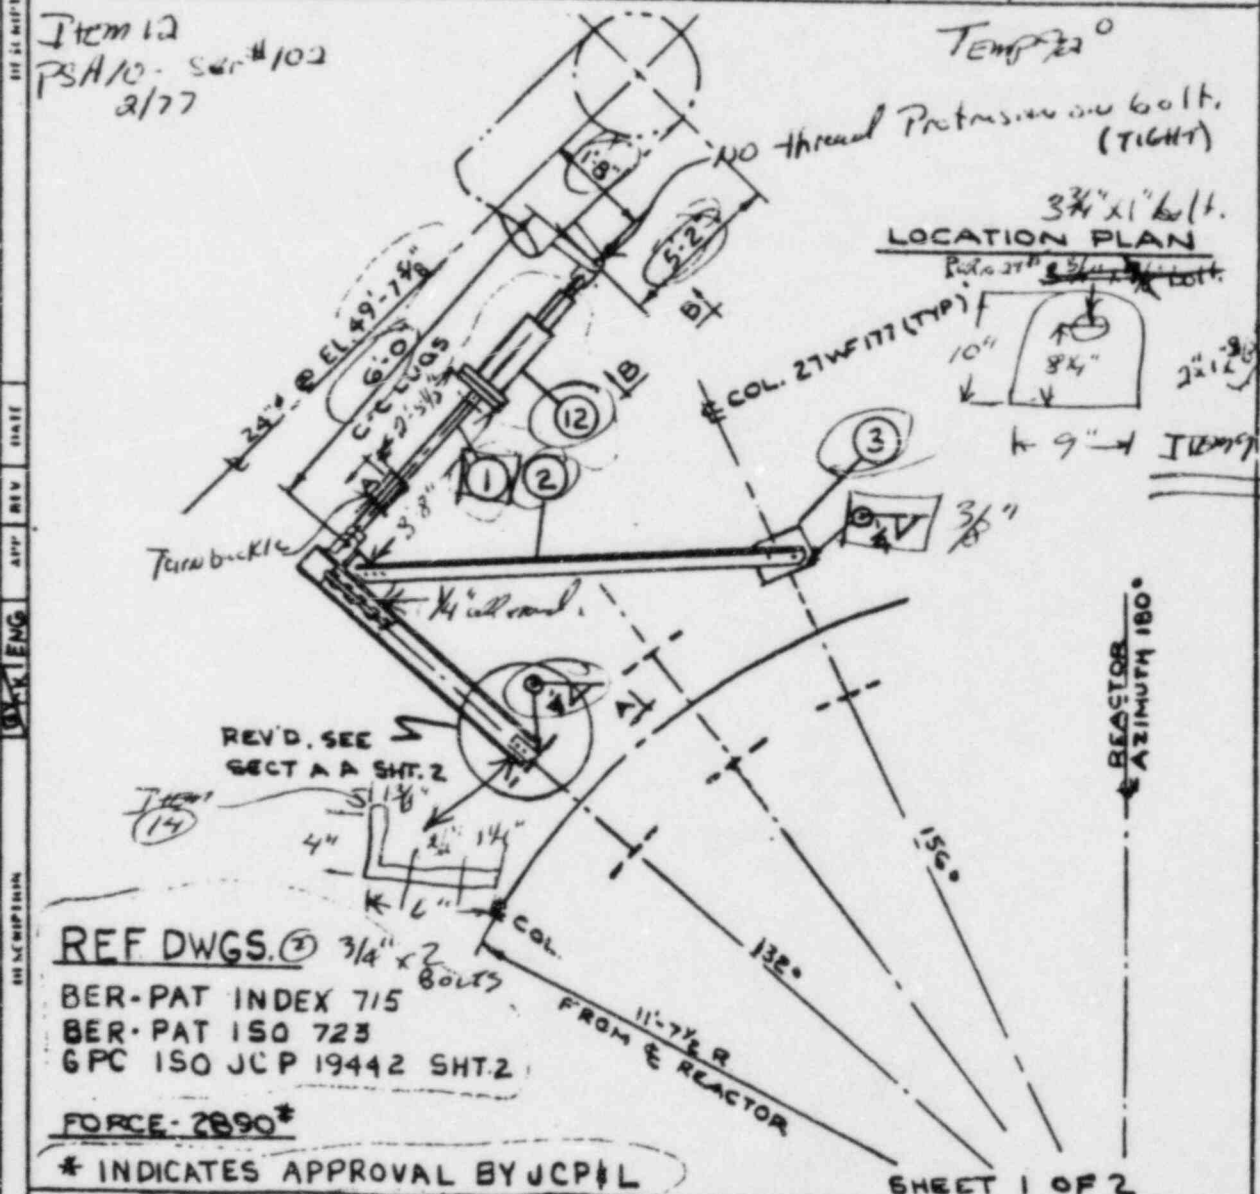 Item 12
PSA10- Ser #102
2/77
Temp 72°
NO thread Protrusion on bolt.
(TIGHT)
3¾" x 1" bolt.
LOCATION PLAN
1'-8"
5'-2"
B
24"⌀ @ EL. 49'-7⅝"
6'-0"
C-C LUGS
COL. 27WF177 (TYP)
10"
8¼"
9"
B
12
3
1
2
3'8"
A
Turnbuckle
¼
3/8"
¼" all around.
¼
A
REV'D. SEE
SECT A A SHT. 2
Item
14
4"
1¼"
6"
℄ COL.
REACTOR
AZIMUTH 180°
156°
132°
11'-7½ R
FROM ℄ REACTOR
REF. DWGS. ②
3/4" x 2
BOLTS
BER-PAT INDEX 715
BER-PAT ISO 723
GPC ISO JCP 19442 SHT.2
FORCE-2890#
* INDICATES APPROVAL BY JCP&L
SHEET 1 OF 2
DATE
REV
APP
ENG
DESCRIPTION